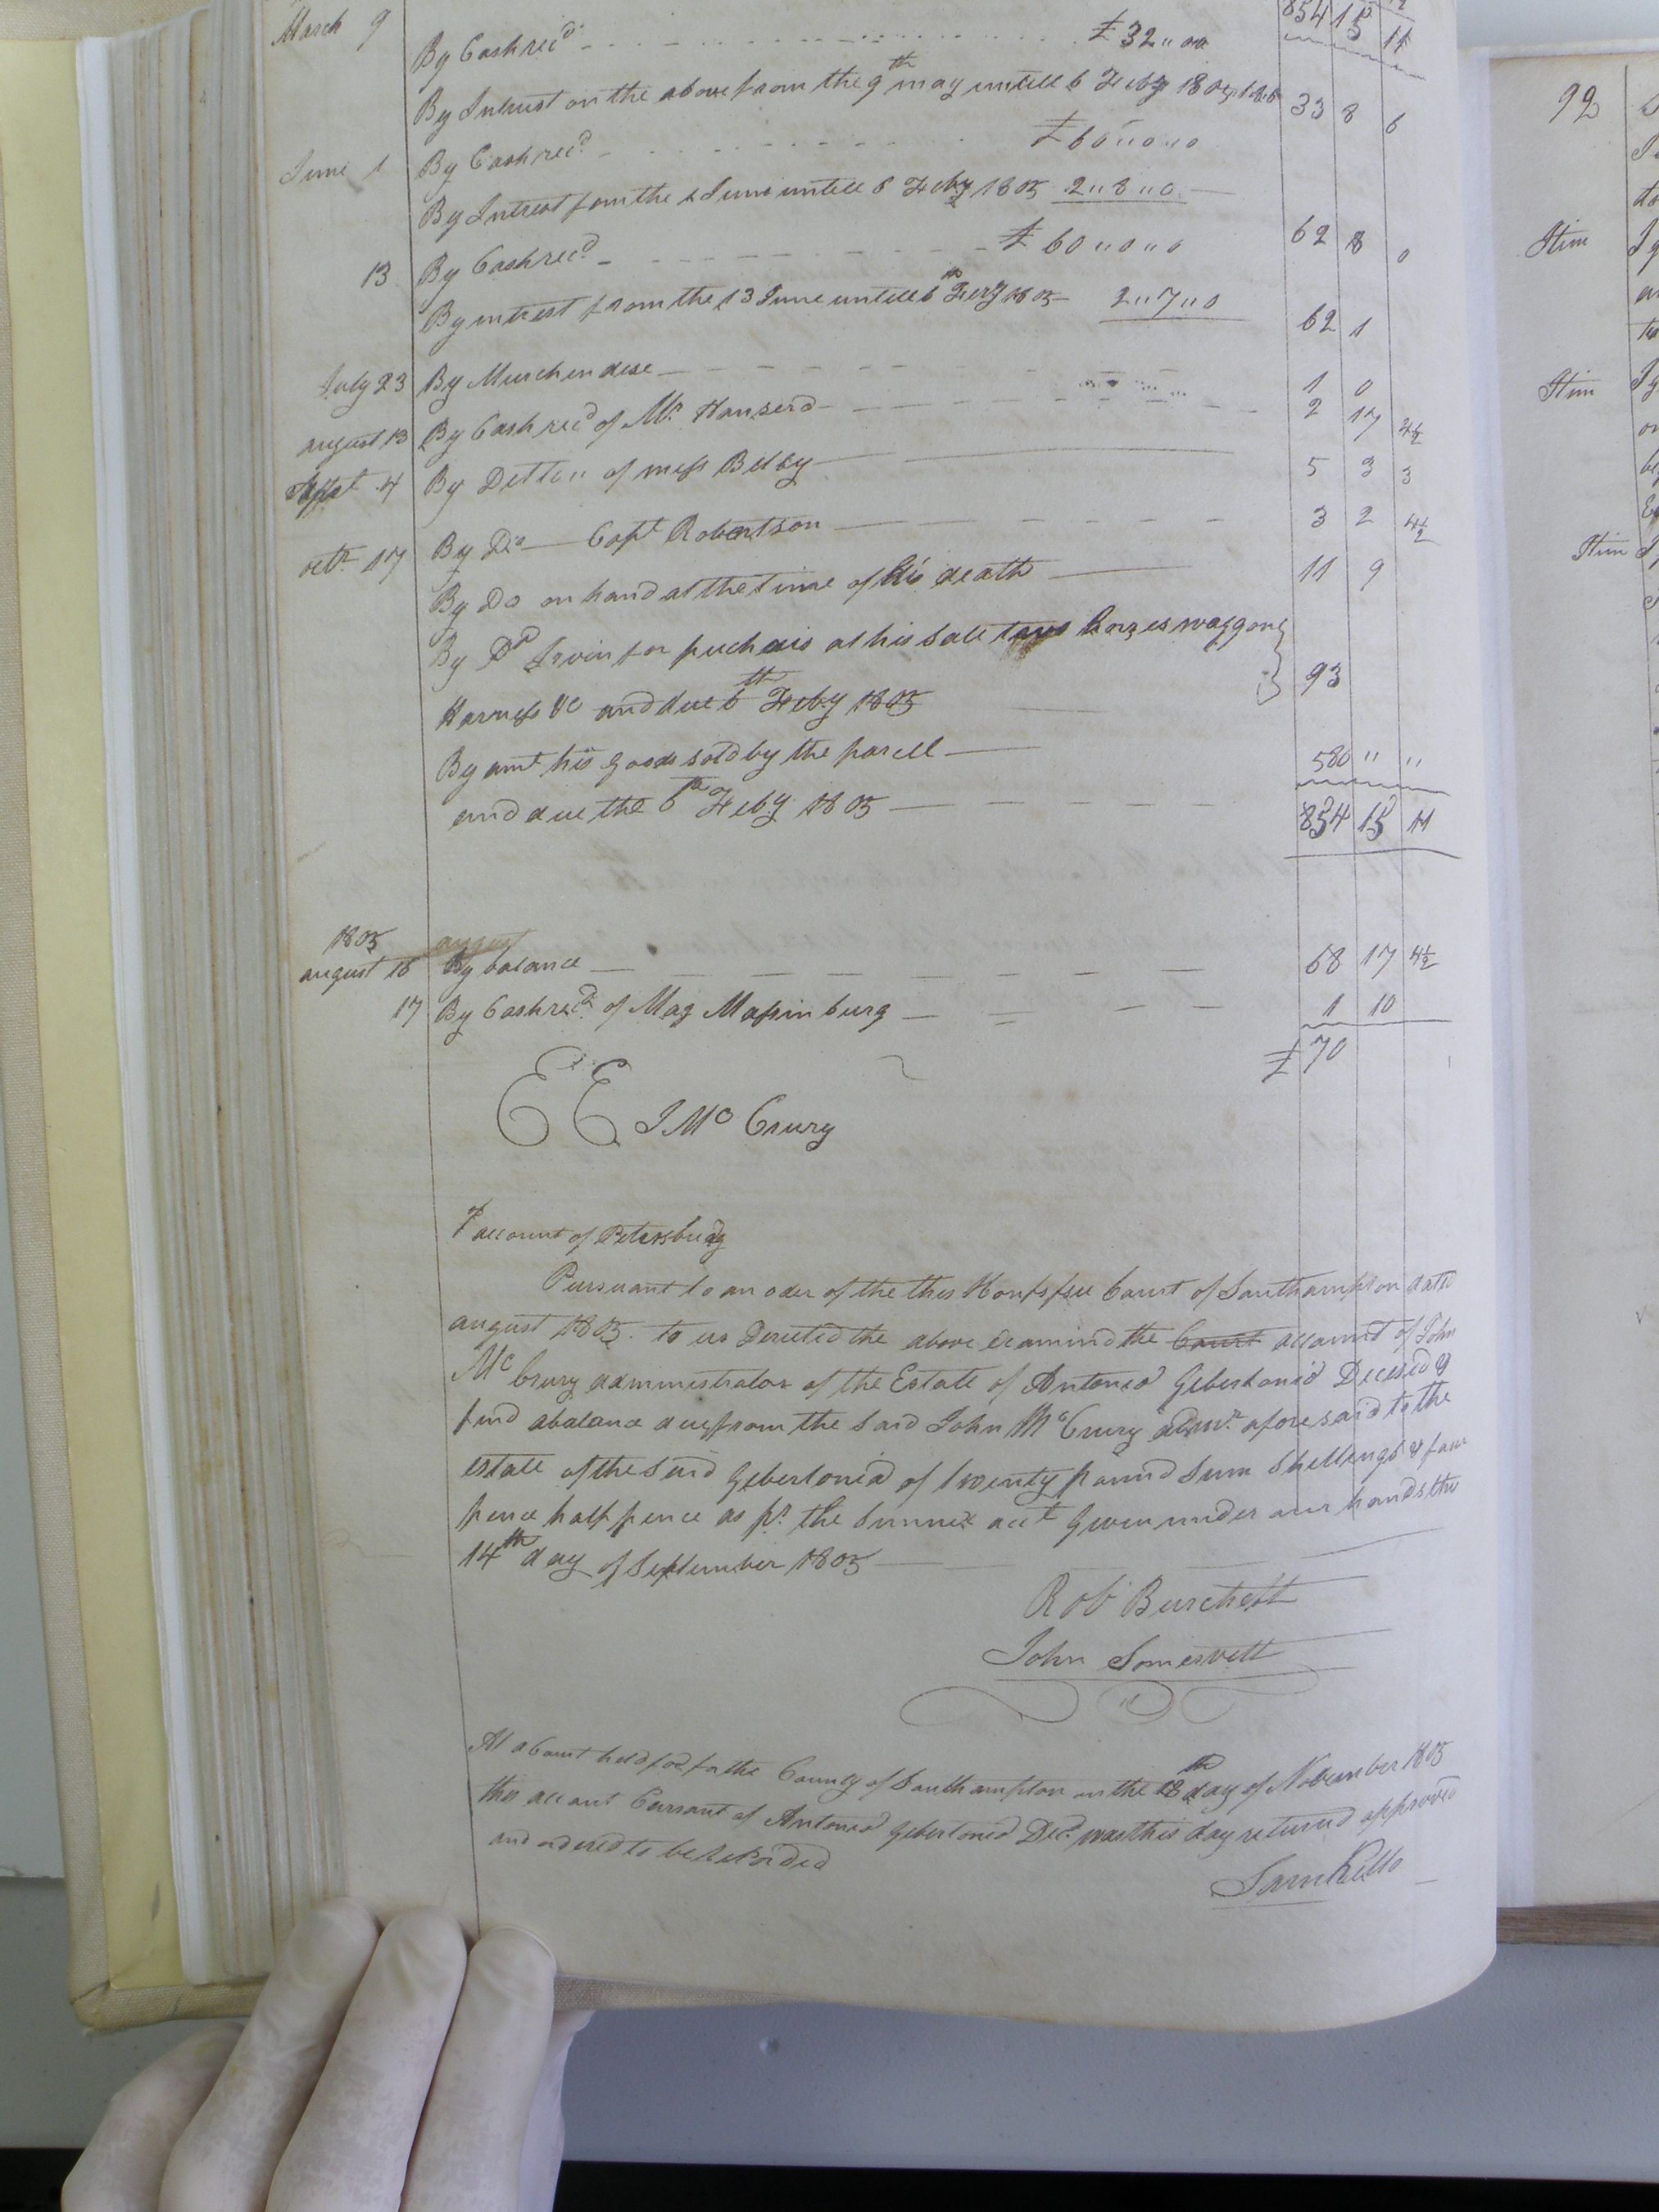 854 15 11
March 9 By Cash recd £32"00
By Intrust on the above from the 9th may untill 6 Feby 1805 1"8"6 33 8 6
June 1 By Cash recd £60"0"0
By Intrest from the 1 June untill 6 Feby 1805 2"8"0 62 8 0
13 By Cash recd £60"0"0
By intrest from the 13 June untill 6th Feby 1805 2"7"0 62 1
July 23 By Murchendise 1 0
august 13 By Cash recd of Mr Hanserd 2 17 4½
Sept 4 By Ditto" of mess Belby 5 3 3
octr 17 By Do Capt Robertson 3 2 4½
By Do on hand at the time of his death 11 9
By Do Irvin for puchais at his sale two horses waggone
Harness &c and due 6th Feby 1805 93
By amt his goods sold by the parcell 580 " "
and due the 6th Feby 1805 854 15 11
1805 august
august 16 By balance 68 17 4½
17 By Cash recd of Mag Massinburg 1 10
£ 70
E E J Mc Crury
account of Petersburg
Pursuant to an oder of the this Court of Southampton datd
august 1805. to us Derected the above examind the Court account of John
Mc Crury administrator of the Estate of Antonio Gebertonid Decesed &
find abalance due from the said John Mc Crury admr. afore said to the
estate of the said Gebertonid of twenty pound Shellings & four
pence half pence as pr. the annex acct Given under our hands the
14th day of September 1805
Rob Burchett
John Somervell
At a Court held for the County of Southampton on the 18th day of November 1805
this account Currant of Antonio Gebertonid Decd. was this day returnd approved
and ordered to be recorded
Sam Kello
92
Itim
Itim
Itim